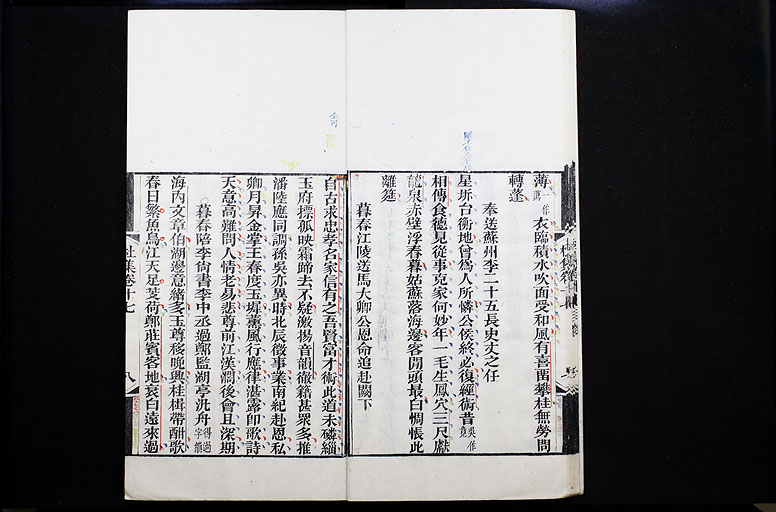 薄一作簿衣臨積水吹面受和風有喜留攀桂無勞問
轉蓬
奉送蘇州李二十五長史丈之任
星坼台衡地曾爲人所憐公侯終必復經術昔
相傳食德見從事克家何妙年一毛生鳳穴三尺獻
龍泉赤壁浮春暮姑蘇落海邊客間頭最白惆悵此
離筵
暮春江陵送馬大卿公恩命追赴闕下
自古求忠孝名家信有之吾賢富才術此道未磷緇
玉府標孤映霜蹄去不疑激揚音韻徹籍甚衆多推
潘陸應同調孫吳亦異時北辰徵事業南紀赴恩私
卿月昇金掌王春度玉墀薰風行應律湛露即歌詩
天意高難問人情老易悲尊前江漢濶後會且深期
暮春陪李尚書李中丞過鄭監湖亭汎舟得過字韻
海内文章伯湖邊意緒多玉尊移晚興桂楫帶酣歌
春日繁魚鳥江天足芰荷鄭莊賓客地衰白遠來過
杜集卷十七
八